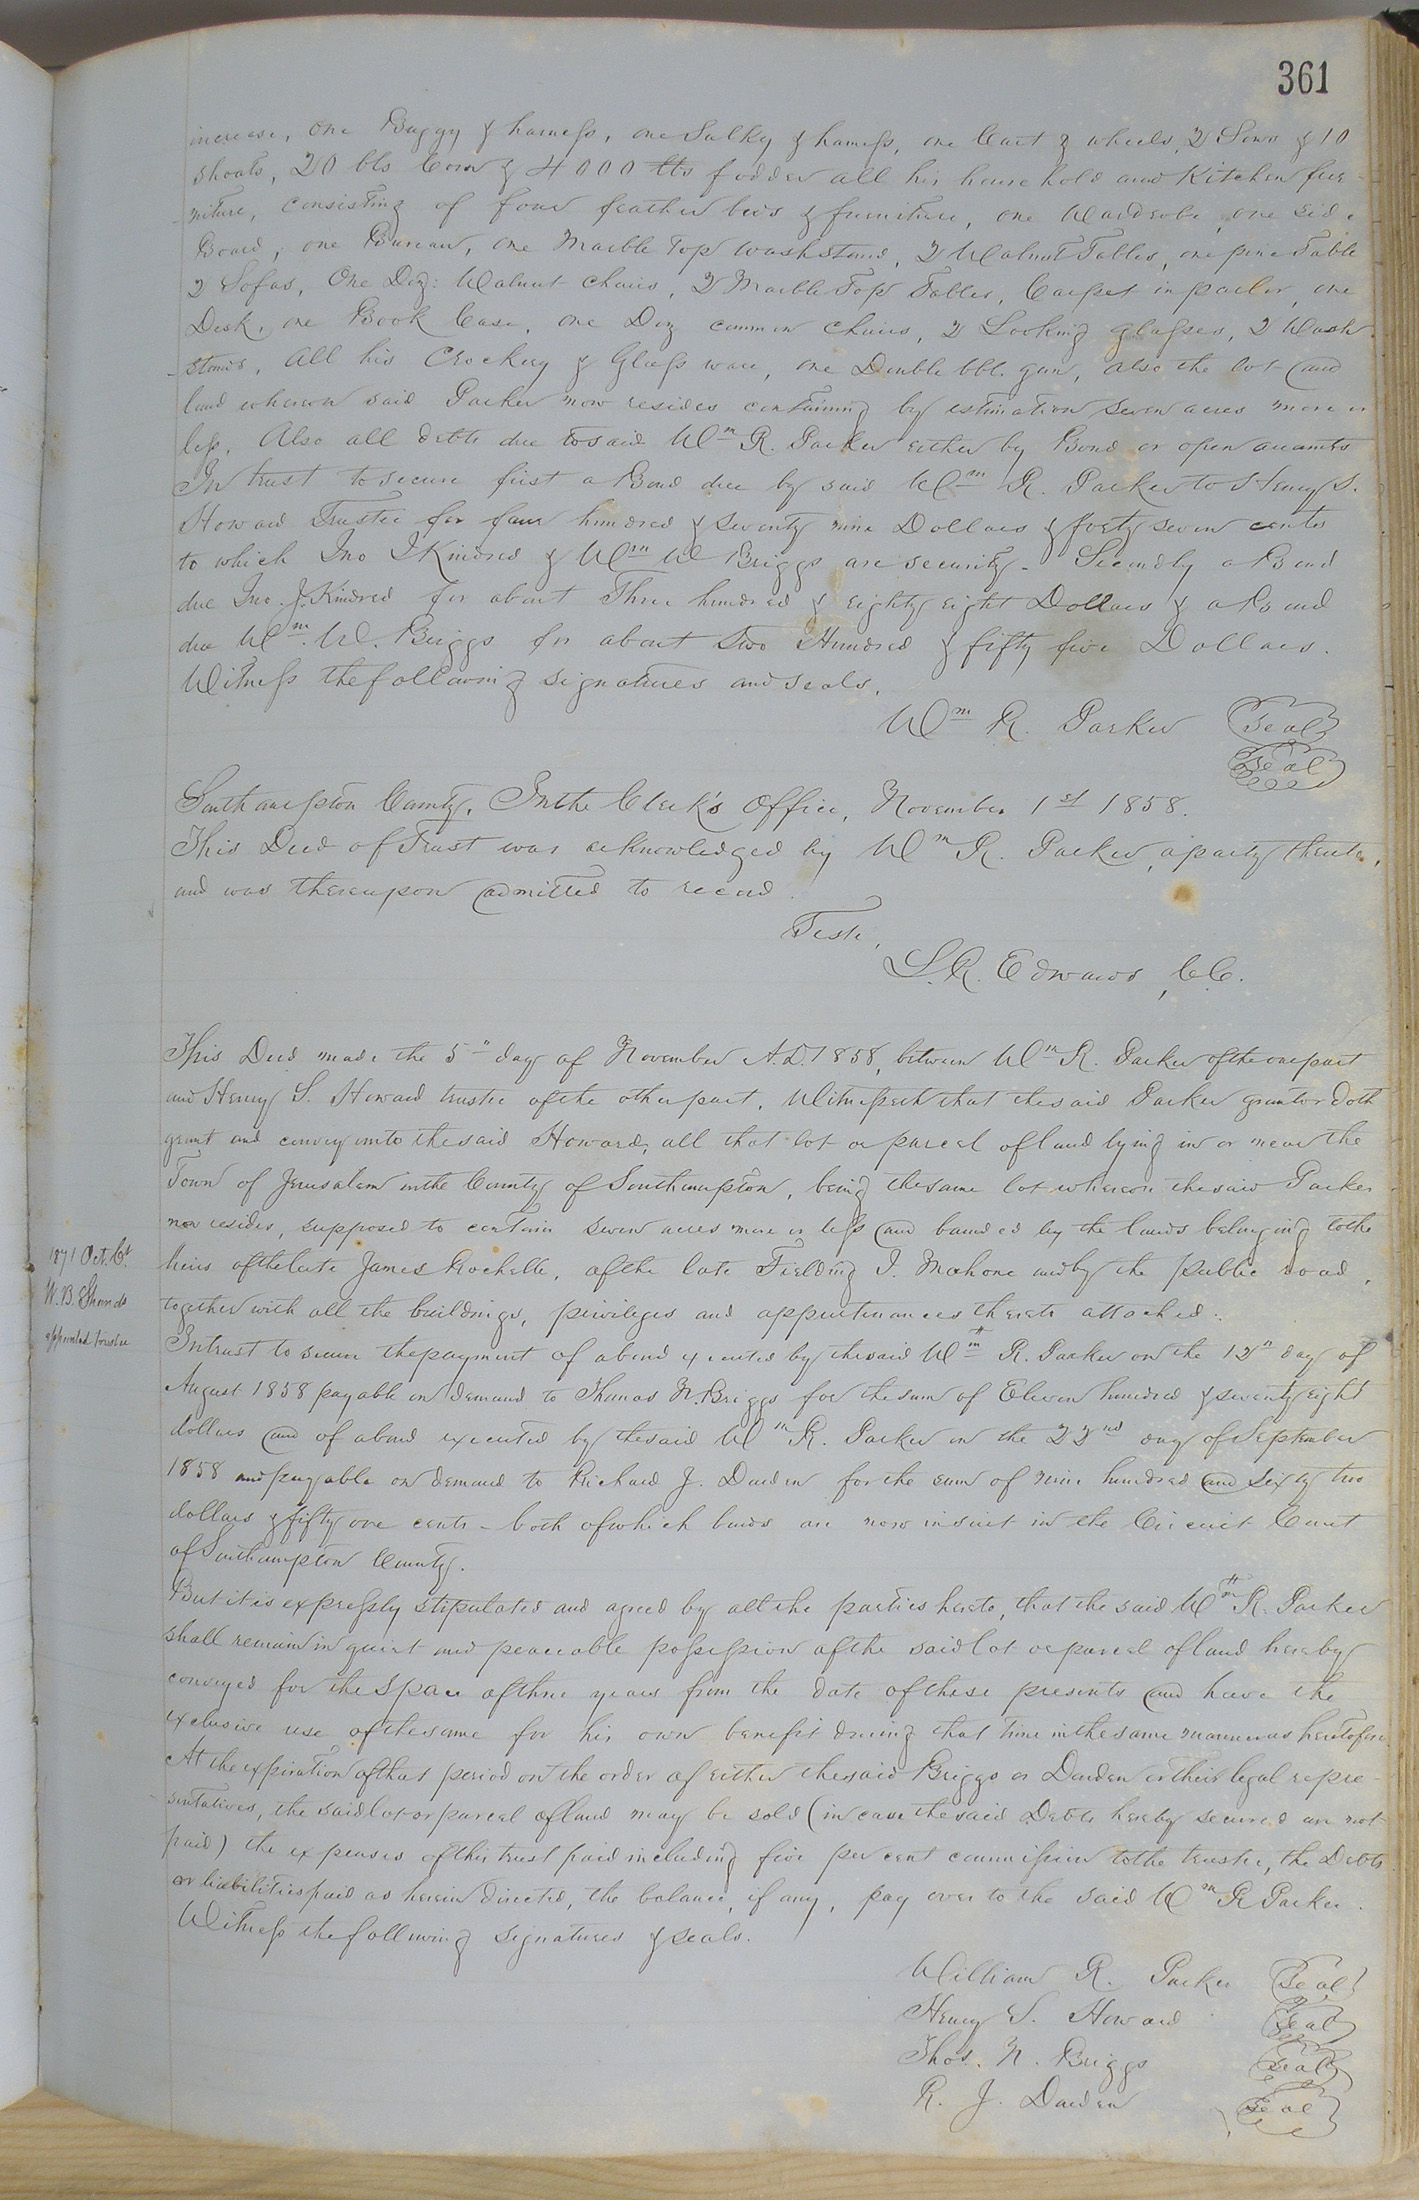 361
increase, One Buggy & harness, one Sulky & harness, one Cart & wheels, 2 Sows & 10
shoats, 20 bls Corn & 4000 lbs fodder all his household and Kitchen fur-
niture, consisting of four feather beds & furniture, one Wardrobe, one Side
Board, one Bureau, one Marble Top washstand, 2 Walnut Tables, one pine Table
2 Sofas, One Doz: Walnut chairs, 2 Marble Top Tables, Carpet in parlor, one
Desk, one Book Case, one Doz common chairs, 2 Looking glasses, 2 Wash
stands, All his Crockery & Glass ware, one Double bbl. gun, also the lot and
land whereon said Parker now resides containing by estimation seven acres more or
less, Also all debts due to said Wm R. Parker either by Bond or open accounts
In trust to secure first a Bond due by said Wm R. Parker to Henry S.
Howard Trustee for four hundred & seventy nine Dollars & forty seven cents
to which Jno J Kindred & Wm W Briggs are security - Secondly a Bond
due Jno. J. Kindred for about Three hundred & eighty eight Dollars & a Bond
due Wm. W. Briggs for about Two Hundred & fifty five Dollars.
Witness the following signatures and seals.
Wm R. Parker Seal
Seal
Southampton County. In the Clerk's Office, November 1st 1858.
This Deed of Trust was acknowledged by Wm R. Parker, a party thereto,
and was thereupon admitted to record.
Teste,
L. R. Edwards, CC.
This Deed made the 5" day of November A.D. 1858, between Wm R. Parker of the one part
and Henry S. Howard trustee of the other part. Witnesseth that the said Parker grantor doth
grant and convey unto the said Howard, all that lot or parcel of land lying in or near the
Town of Jerusalem in the County of Southampton, being the same lot whereon the said Parker
now resides, supposed to contain seven acres more or less and bounded by the lands belonging to the
heirs of the late James Rochelle, of the late Fielding J. Mahone and by the public road,
together with all the buildings, privileges and appurtenances thereto attached.
1871 Oct. Ct.
W. B. Shands
appointed trustee
In trust to secure the payment of a bond executed by the said Wm R. Parker on the 12" day of
August 1858 payable on demand to Thomas N. Briggs for the sum of Eleven hundred & seventy eight
dollars and of a bond executed by the said Wm R. Parker on the 22nd day of September
1858 and payable on demand to Richard J. Darden for the sum of nine hundred and sixty two
dollars & fifty one cents - both of which bonds are now in suit in the Circuit Court
of Southampton County.
But it is expressly stipulated and agreed by all the parties hereto, that the said Wm R. Parker
shall remain in quiet and peaceable possession of the said lot or parcel of land hereby
conveyed for the space of three years from the date of these presents and have the
exclusive use of the same for his own benefit during that time in the same manner as heretofore.
At the expiration of that period on the order of either the said Briggs or Darden or their legal repre-
sentatives, the said lot or parcel of land may be sold (in case the said Debts hereby secured are not
paid) the expenses of this trust paid including five per cent commission to the trustee, the Debts
or liabilities paid as herein directed, the balance, if any, pay over to the said Wm R Parker.
Witness the following signatures & seals.
William R. Parker Seal
Henry S. Howard Seal
Thos. N. Briggs Seal
R. J. Darden Seal